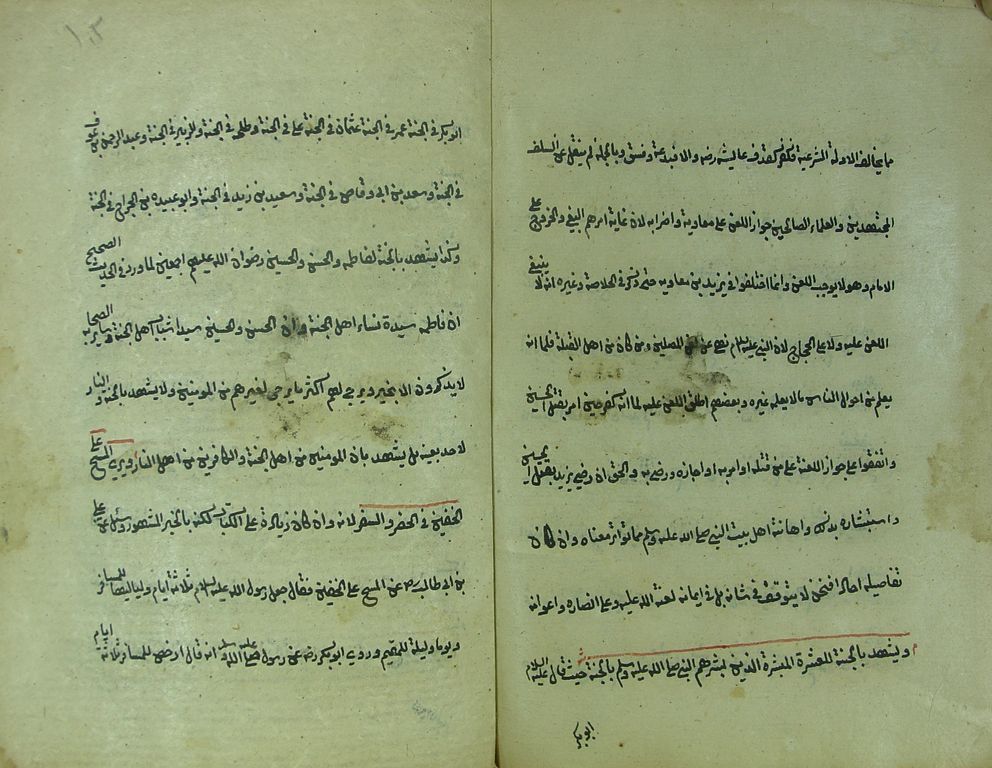 ما يخالف الادلة الشرعية فكفر كقذف عايشه رضه والا فبدعة وفسق وبالجملة لم ينقل عن السلف
المجتهدين والعلماء الصالحين جواز اللعن على معاوية واضرابه لان غاية امرهم البغي والخروج على
الامام وهو لا يوجب اللعن وانما اختلفوا في يزيد بن معاويه حتى ذكر في الخلاصة وغيره انه لا ينبغي
اللعن عليه ولا على الحجاج لان النبي عليه السلام نهى عن لعن المصلين ومن كان من اهل القبلة فلما انه
يعلم من احوال الناس مالا يعلمه غيره وبعضهم اطلق اللعن عليه لما انه كفر حين امر بقتل الحسين
واتفقوا على جواز اللعنة على من قتله او امر به او اجازه ورضي به والحق ان رضى يزيد بقتل الحسين
واستبشاره بذلك واهانته اهل بيت النبي صلى الله عليه وسلم مما تواتر معناه وان كان
تفاصيله احادا فنحن لا نتوقف في شانه بل في ايمانه لعنة الله عليه وعلى انصاره واعوانه
ويشهد بالجنة للعشرة المبشرة الذين بشرهم النبي صلى الله عليه وسلم بالجنة حيث قال عليه السلام
ابو بكر
١٠٣
ابو بكر في الجنة عمر في الجنة عثمان في الجنة على في الجنة وطلحه في الجنة والزبير في الجنة وعبد الرحمن بن عوف
في الجنة وسعد بن ابى وقاص في الجنة وسعيد بن زيد في الجنة وابو عبيده بن الجراح في الجنة
وكذا يشهد بالجنة لفاطمه والحسن والحسين رضوان الله عليهم اجمعين لما ورد في الحديث الصحيح
ان فاطمه سيدة نساء اهل الجنة وان الحسن والحسين سيدا شباب اهل الجنة وساير الصحابه
لا يذكرون الا بخير ويرجى لهم اكثر ما يرجى لغيرهم من المومنين ولا يشهد بالجنة والنار
لاحد بعينه بل يشهد بان المومنين من اهل الجنة والكافرين من اهل النار ويرى المسح على
الخفين في الحضر والسفر لانه وان كان زيادة على الكتاب لكنه بالخبر المشهور وسئل عن على
بن ابى طالب عن المسح على الخفين فقال جعل رسول الله عليه السلام ثلاثة ايام ولياليها للمسافر
ويوما وليلة للمقيم وروى ابو بكر رضه عن رسول الله صلى الله عليه وسلم انه قال ارخص للمسافر ثلاثة ايام